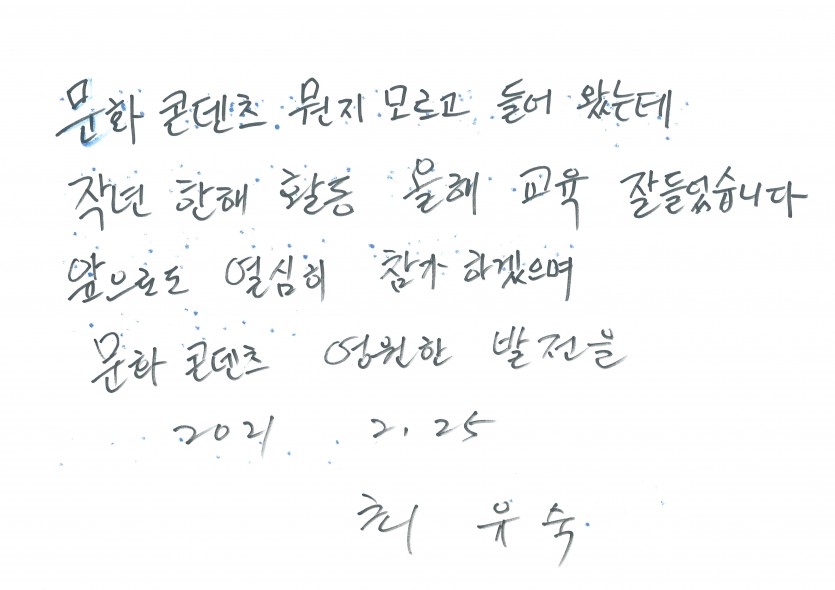 문화 콘덴츠 뭔지 모르고 들어 왔는데
작년 한해 활동 올해 교육 잘들었습니다
앞으로도 열심히 참가 하겠으며
문화 콘덴츠 영원한 발전을
2021 2. 25
최 유숙